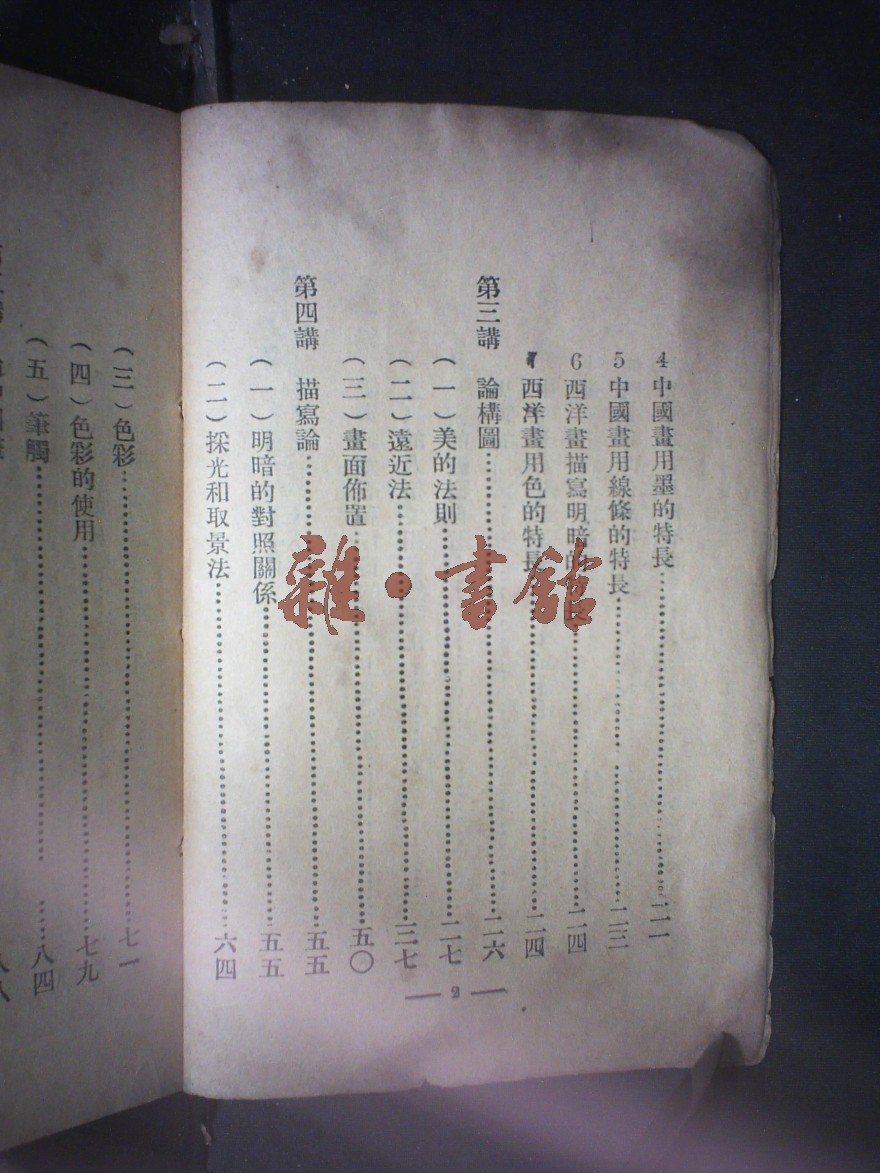 4 中國畫用墨的特長……二一
5 中國畫用線條的特長……二三
6 西洋畫描寫明暗的特長……二四
7 西洋畫用色的特長……二四
第三講 論構圖……二六
(一)美的法則……二七
(二)遠近法……三七
(三)畫面佈置……五〇
第四講 描寫論……五五
(一)明暗的對照關係……五五
(二)採光和取景法……六四
— 2 —
(三)色彩……七一
(四)色彩的使用……七九
(五)筆觸……八四
雜·書館